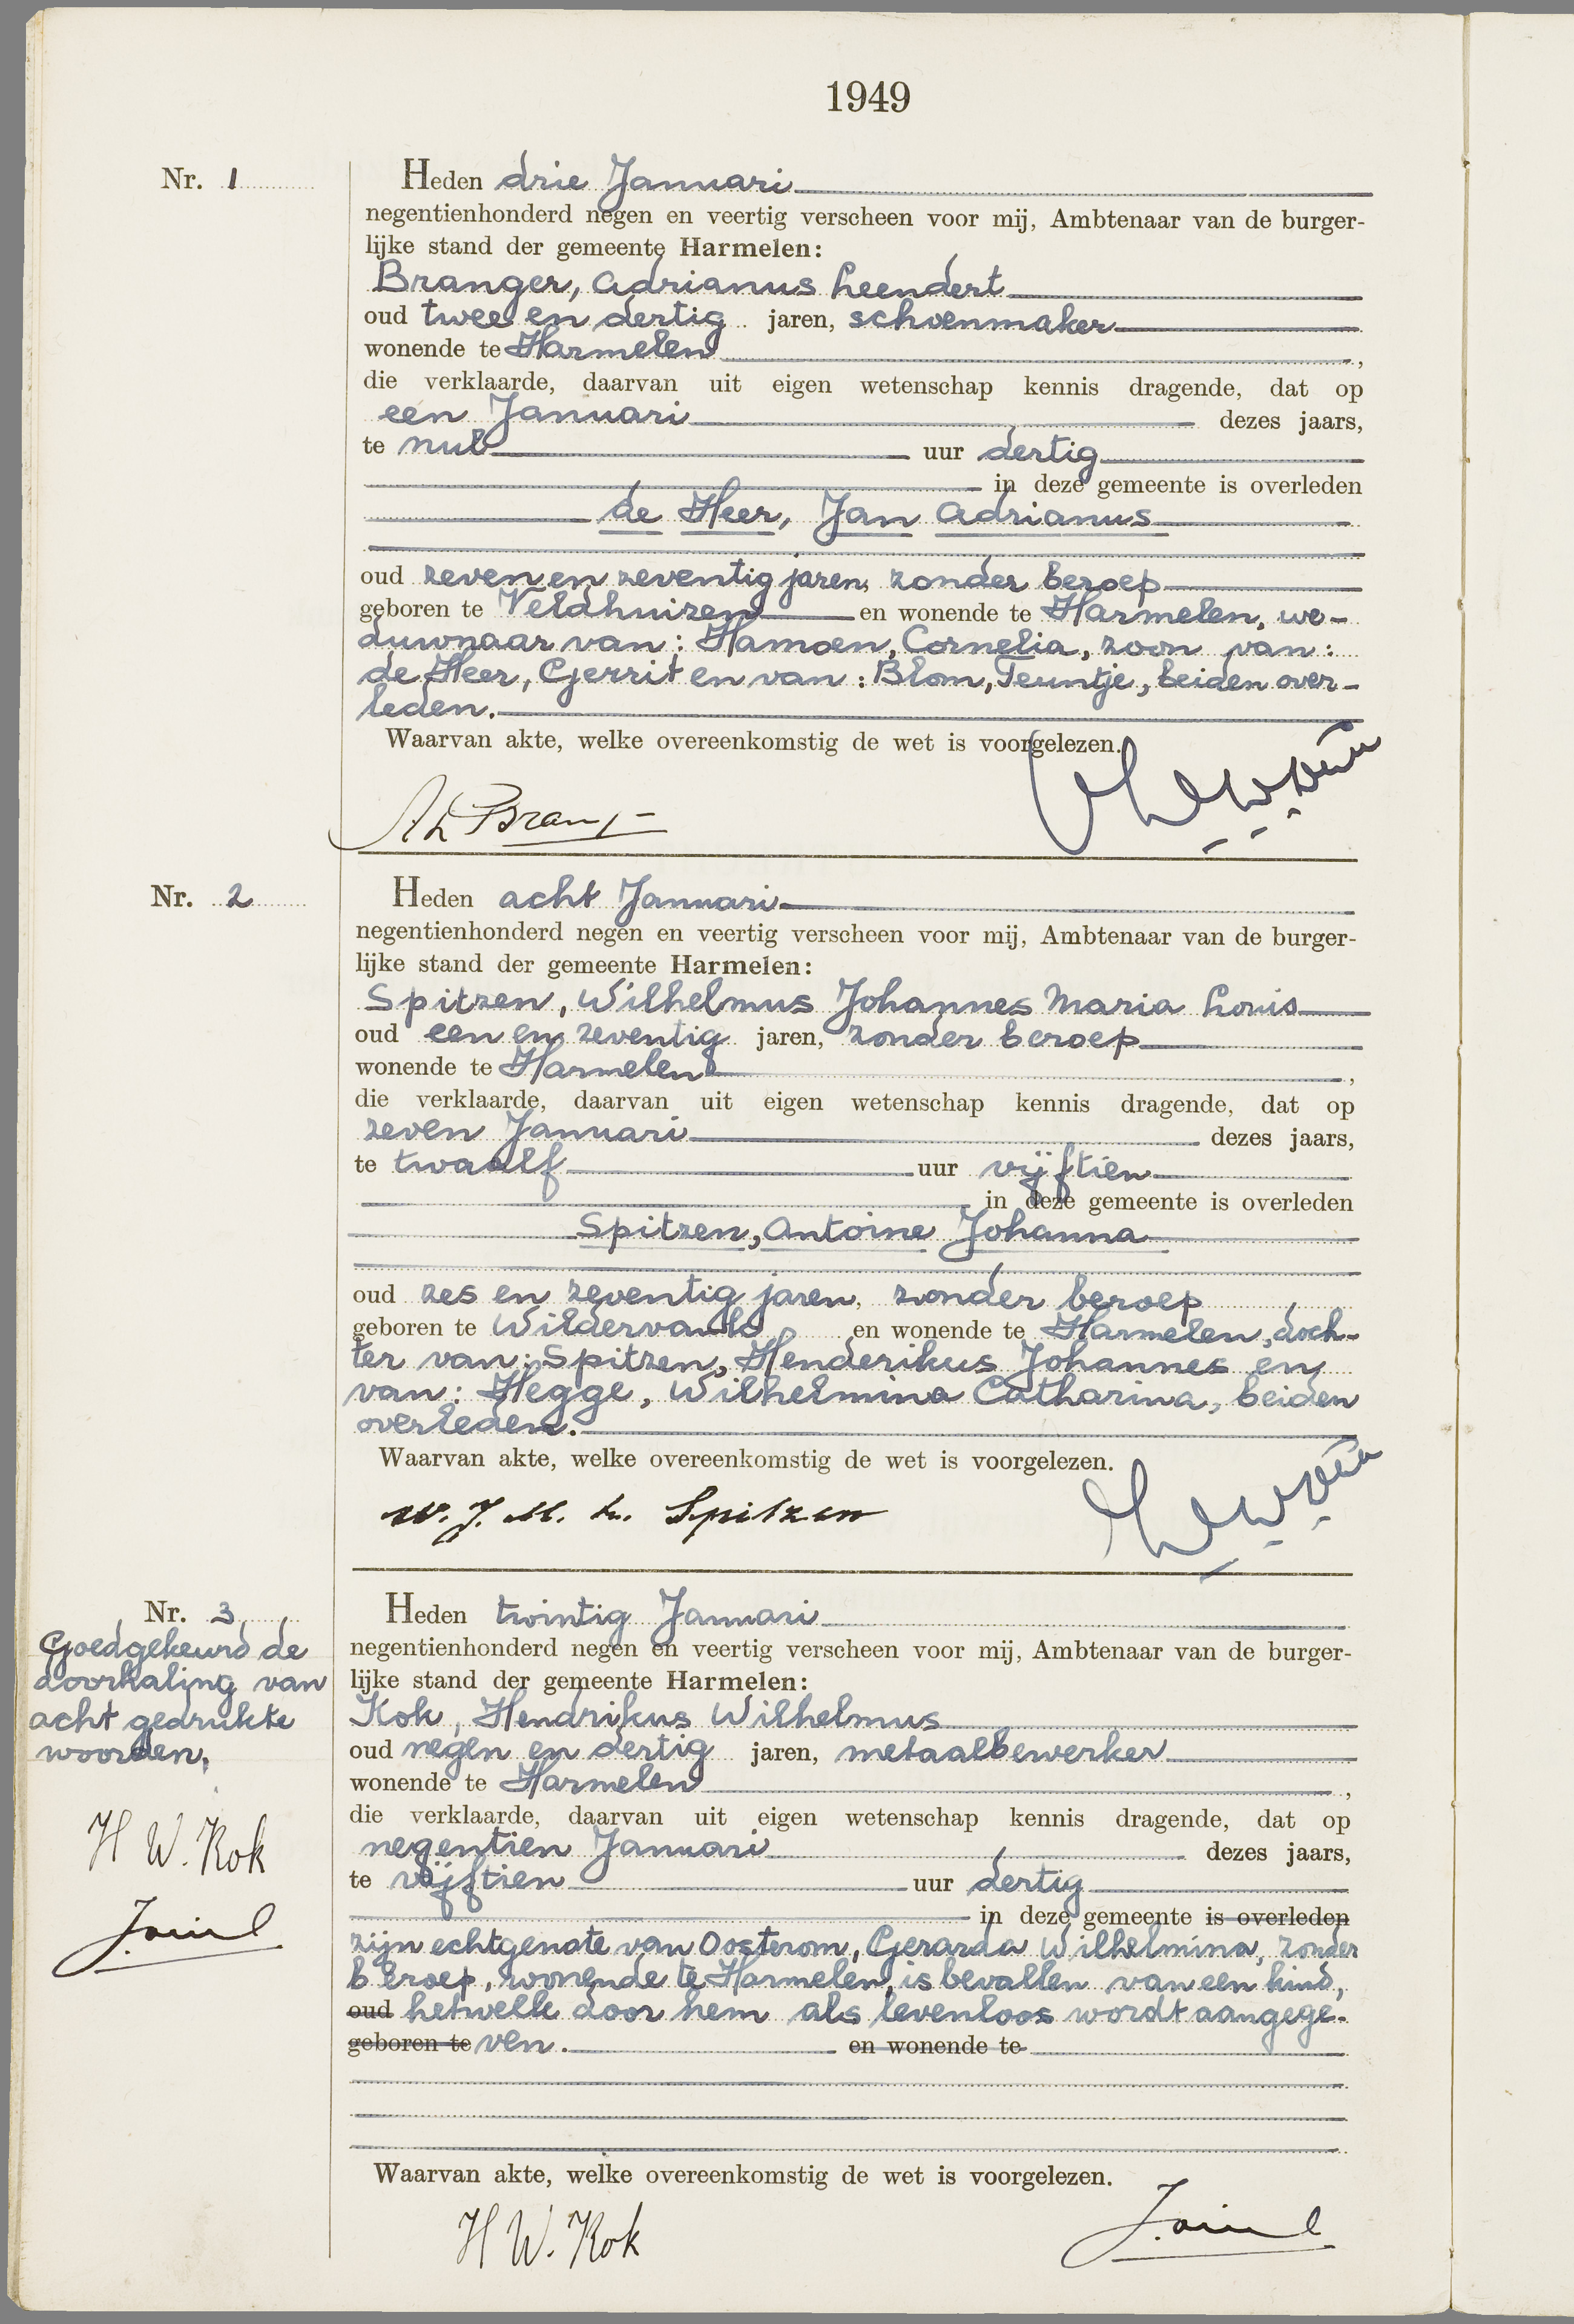 1949
Nr. 1
Heden drie Januari
negentienhonderd negen en veertig verscheen voor mij, Ambtenaar van de burger-
lijke stand der gemeente Harmelen:
Branger, Adrianus Leendert
oud twee en dertig jaren, schoenmaker
wonende te Harmelen,
die verklaarde, daarvan uit eigen wetenschap kennis dragende, dat op
een Januari dezes jaars,
te nul uur dertig
in deze gemeente is overleden
de Heer, Jan Adrianus
oud zeven en zeventig jaren, zonder beroep
geboren te Veldhuizen en wonende te Harmelen, we-
duwnaar van: Hamoen, Cornelia, zoon van:
de Heer, Gerrit en van: Blom, Teuntje, beiden over-
leden.
Waarvan akte, welke overeenkomstig de wet is voorgelezen.
Nr. 2
Heden acht Januari
negentienhonderd negen en veertig verscheen voor mij, Ambtenaar van de burger-
lijke stand der gemeente Harmelen:
Spitzen, Wilhelmus Johannes Maria Louis
oud een en zeventig jaren, zonder beroep
wonende te Harmelen,
die verklaarde, daarvan uit eigen wetenschap kennis dragende, dat op
zeven Januari dezes jaars,
te twaalf uur vijftien
in deze gemeente is overleden
Spitzen, Antoine Johanna
oud zes en zeventig jaren, zonder beroep
geboren te Wildervank en wonende te Harmelen, doch-
ter van: Spitzen, Henderikus Johannes en
van: Hegge, Wilhelmina Catharina, beiden
overleden.
Waarvan akte, welke overeenkomstig de wet is voorgelezen.
W. J. M. L. Spitzen
Nr. 3
Goedgekeurd de
doorhaling van
acht gedrukte
woorden.
H W. Kok
Heden twintig Januari
negentienhonderd negen en veertig verscheen voor mij, Ambtenaar van de burger-
lijke stand der gemeente Harmelen:
Kok, Hendrikus Wilhelmus
oud negen en dertig jaren, metaalbewerker
wonende te Harmelen,
die verklaarde, daarvan uit eigen wetenschap kennis dragende, dat op
negentien Januari dezes jaars,
te vijftien uur dertig
in deze gemeente is overleden
zijn echtgenote van Oosterom, Gerarda Wilhelmina, zonder
beroep, wonende te Harmelen, is bevallen van een kind,
oud hetwelk door hem als levenloos wordt aangege-
geboren te ven. en wonende te
Waarvan akte, welke overeenkomstig de wet is voorgelezen.
H W. Kok